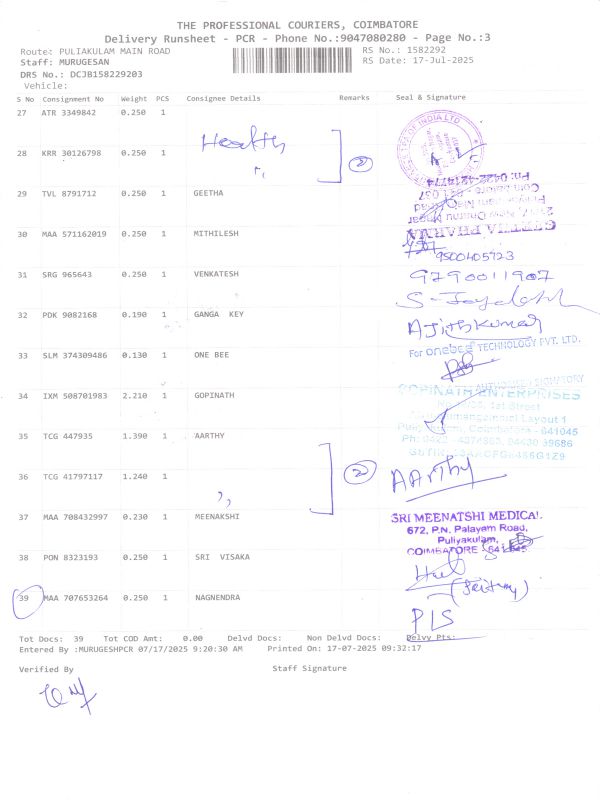 THE PROFESSIONAL COURIERS, COIMBATORE
Delivery Runsheet - PCR - Phone No.:9047080280 - Page No.:3
Route: PULIAKULAM MAIN ROAD RS No.: 1582292
Staff: MURUGESAN RS Date: 17-Jul-2025
DRS No.: DCJB158229203
Vehicle:
S No Consignment No Weight PCS Consignee Details Remarks Seal & Signature
27 ATR 3349842 0.250 1
Health
28 KRR 30126798 0.250 1 " 2
29 TVL 8791712 0.250 1 GEETHA
Ph: 0422-4214774
30 MAA 571162019 0.250 1 MITHILESH
9500405723
31 SRG 965643 0.250 1 VENKATESH 9790011907
32 PDK 9082168 0.190 1 GANGA KEY Ajithkumar
33 SLM 374309486 0.130 1 ONE BEE For onebee TECHNOLOGY PVT. LTD.
AUTHORISED SIGNATORY
34 IXM 508701983 2.210 1 GOPINATH GOPINATH ENTERPRISES
1st Street
Layout 1
Coimbatore - 641045
35 TCG 447935 1.390 1 AARTHY
36 TCG 41797117 1.240 1 2 AArthy
"
37 MAA 708432997 0.230 1 MEENAKSHI SRI MEENATSHI MEDICAL
672, P.N. Palayam Road,
Puliyakulam,
COIMBATORE - 641 045
38 PON 8323193 0.250 1 SRI VISAKA
39 MAA 707653264 0.250 1 NAGNENDRA
PLS
Tot Docs: 39 Tot COD Amt: 0.00 Delvd Docs: Non Delvd Docs: Delvy Pts:
Entered By :MURUGESHPCR 07/17/2025 9:20:30 AM Printed On: 17-07-2025 09:32:17
Verified By Staff Signature